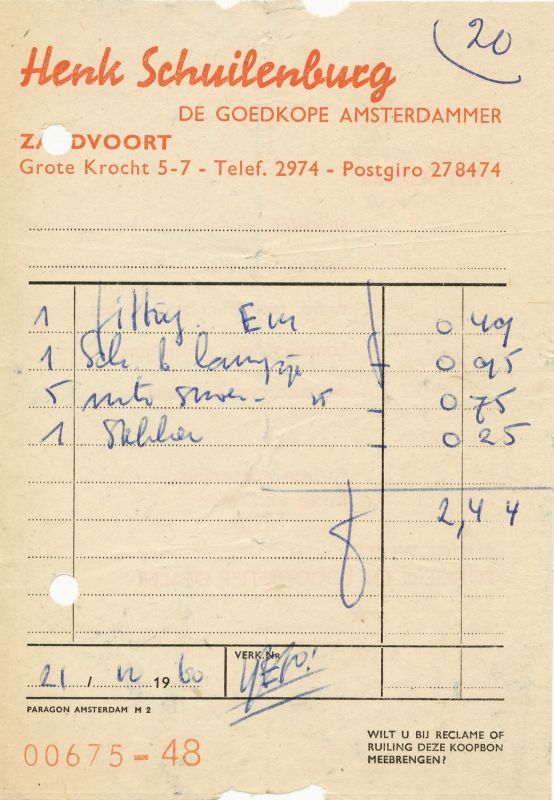 20
Henk Schuilenburg
DE GOEDKOPE AMSTERDAMMER
ZA DVOORT
Grote Krocht 5-7 - Telef. 2974 - Postgiro 278474
1 fitting 0 49
1 Sch. b lampje f 0 95
5 mtr snoer - 15 - 0 75
1 Stekker - 0 25
f 2,44
21 / 12 1960 VERK.Nr.
PARAGON AMSTERDAM M 2
00675-48
WILT U BIJ RECLAME OF
RUILING DEZE KOOPBON
MEEBRENGEN?